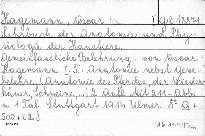 Hagemann, Oscar
Lehrbuch der Anatomie und Phy-
siologie der Haustiere.
Gemeinfassliche Belehrung von Oscar
Hagemann I. T. Anatomie nebst Gewe-
belehre. (Anatomie des Pferdes, der Wieder-
käuer, Schweine, ...) 2. Aufl. Mit 211 Abb.
u. 1 Taf. Stuttgart 1914 Ulmer. 8°